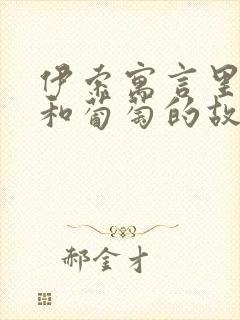 伊索寓言里
和葡萄的故
郝金才